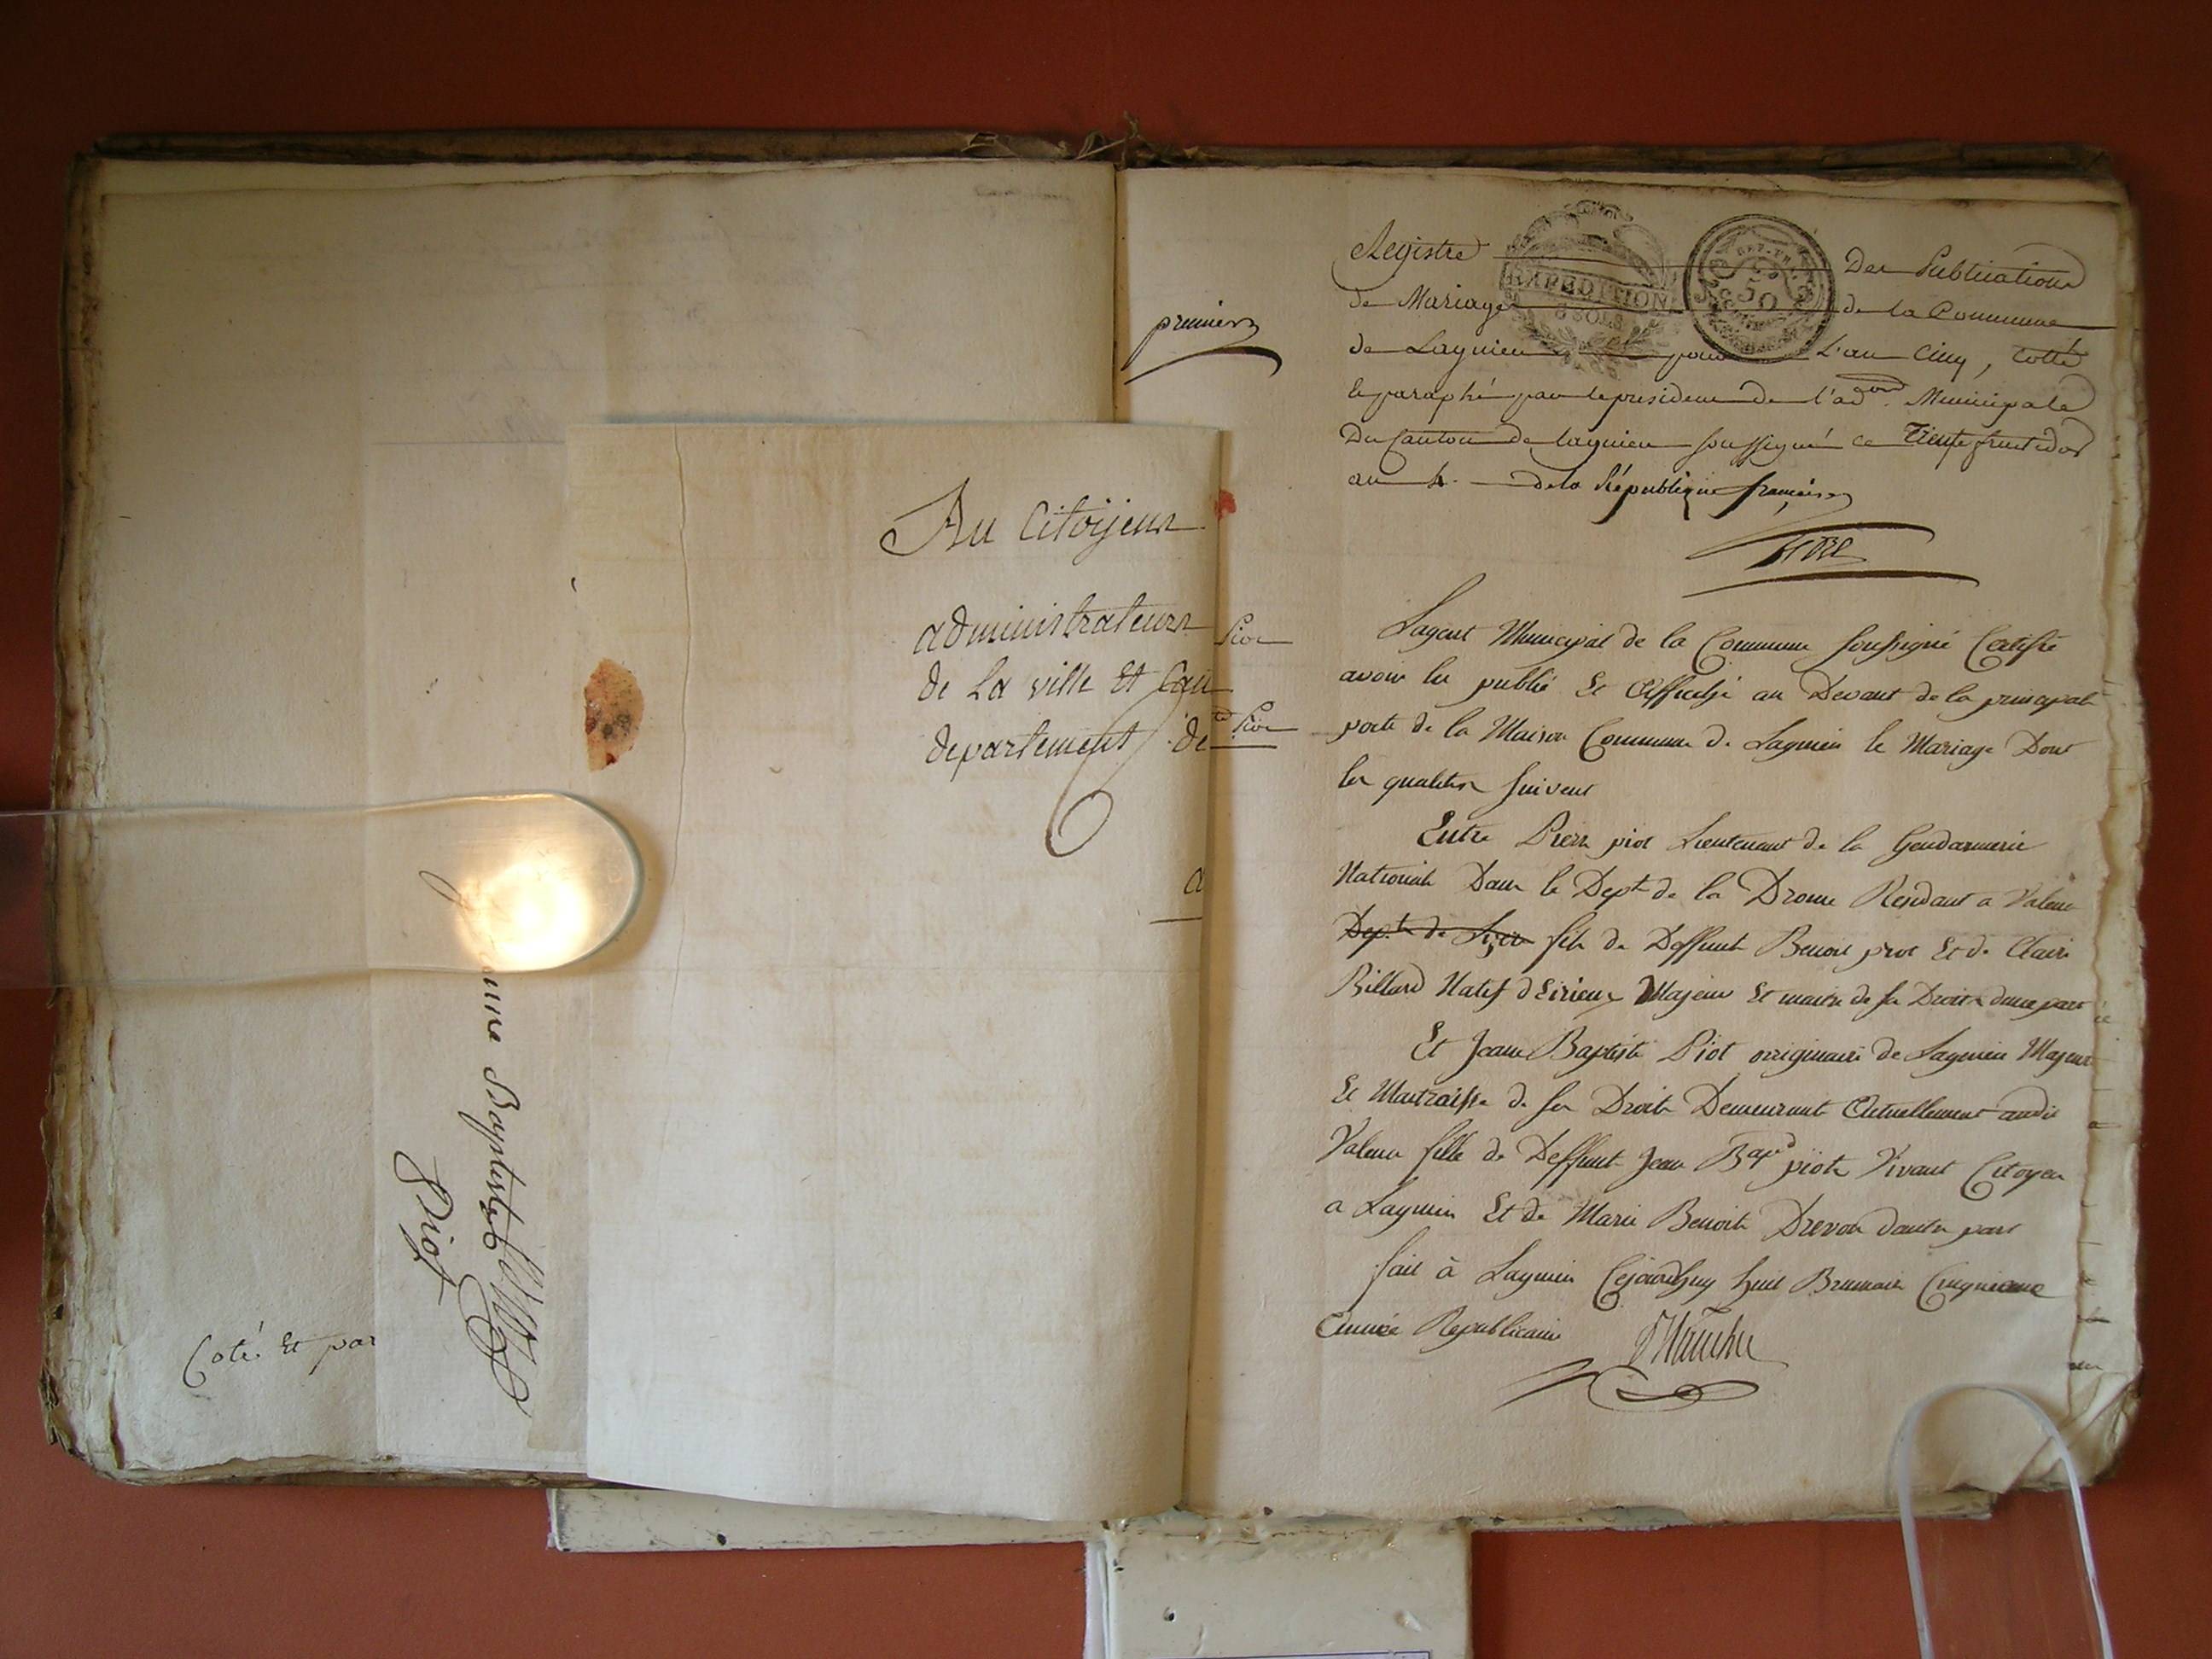 Au Citoyens
administrateurs
de La ville Et Can
departement de
a
anne Baptiste
Piot
Coté Et par
premier
Registre Des Publications
de Mariage de la Commune
de Lagnieu pour L'an Cinq, Cotté
Et paraphé par le president de l'adon Municipale
Du Canton de Lagnieu soussigné ce Trente fructidor
an 4. de la République française
EXPEDITION
3 SOLS
REP. FR.
50
Piot
Piot
Lagent Municipal de la Commune soussigné Certifie
avoir lu publié Et Affiché au Devant de la principale
porte de la Maison Commune de Lagnieu le Mariage Dont
les qualites suivent
Entre Pierre piot Lieutenant de la Gendarmerie
Nationale Dans le Dept de la Drome Residant a Valence
Dept de fils de Deffunt Benoit piot Et de Claire
Billard Natif Majeur Et maitre de ses Droits dune part
Et Jeanne Baptiste Piot originaire de Lagnieu Majeure
Et Maitraisse de ses Droits Demeurant Actuellement audit
Valence fille de Deffunt Jean Bapt piot Vivant Citoyen
a Lagnieu Et de Marie Benoite Drevon dautre part
fait à Lagnieu Cejourdhuy huit Brumaire Cinquieme
Année Republicaine